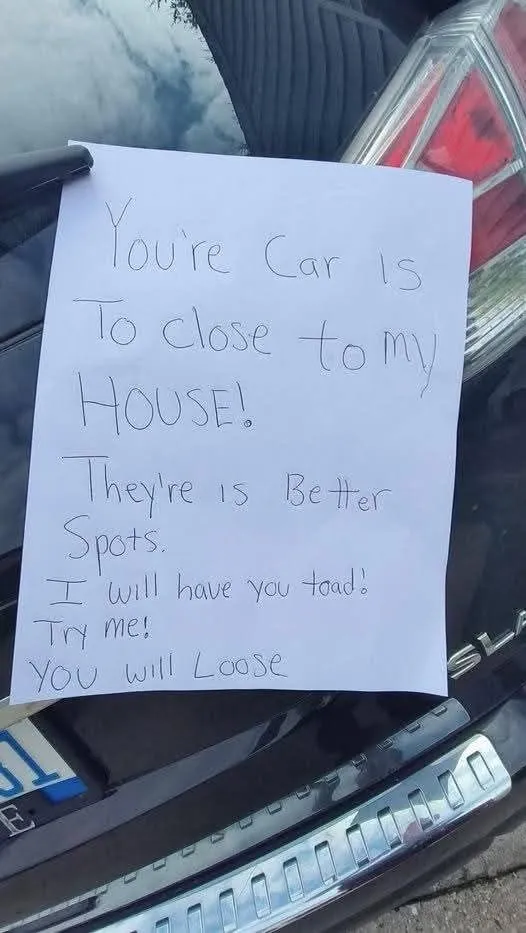 You're Car is
To close to my
HOUSE!
They're is Better
Spots.
I will have you toad!
Try me!
You will Loose
SLA
51
E